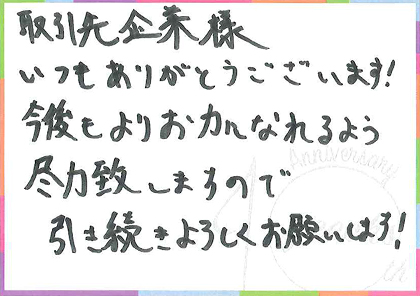 取引先企業様
いつもありがとうございます!
今後もよりお力になれるよう
尽力致しますので
引き続きよろしくお願いします!
Anniversary